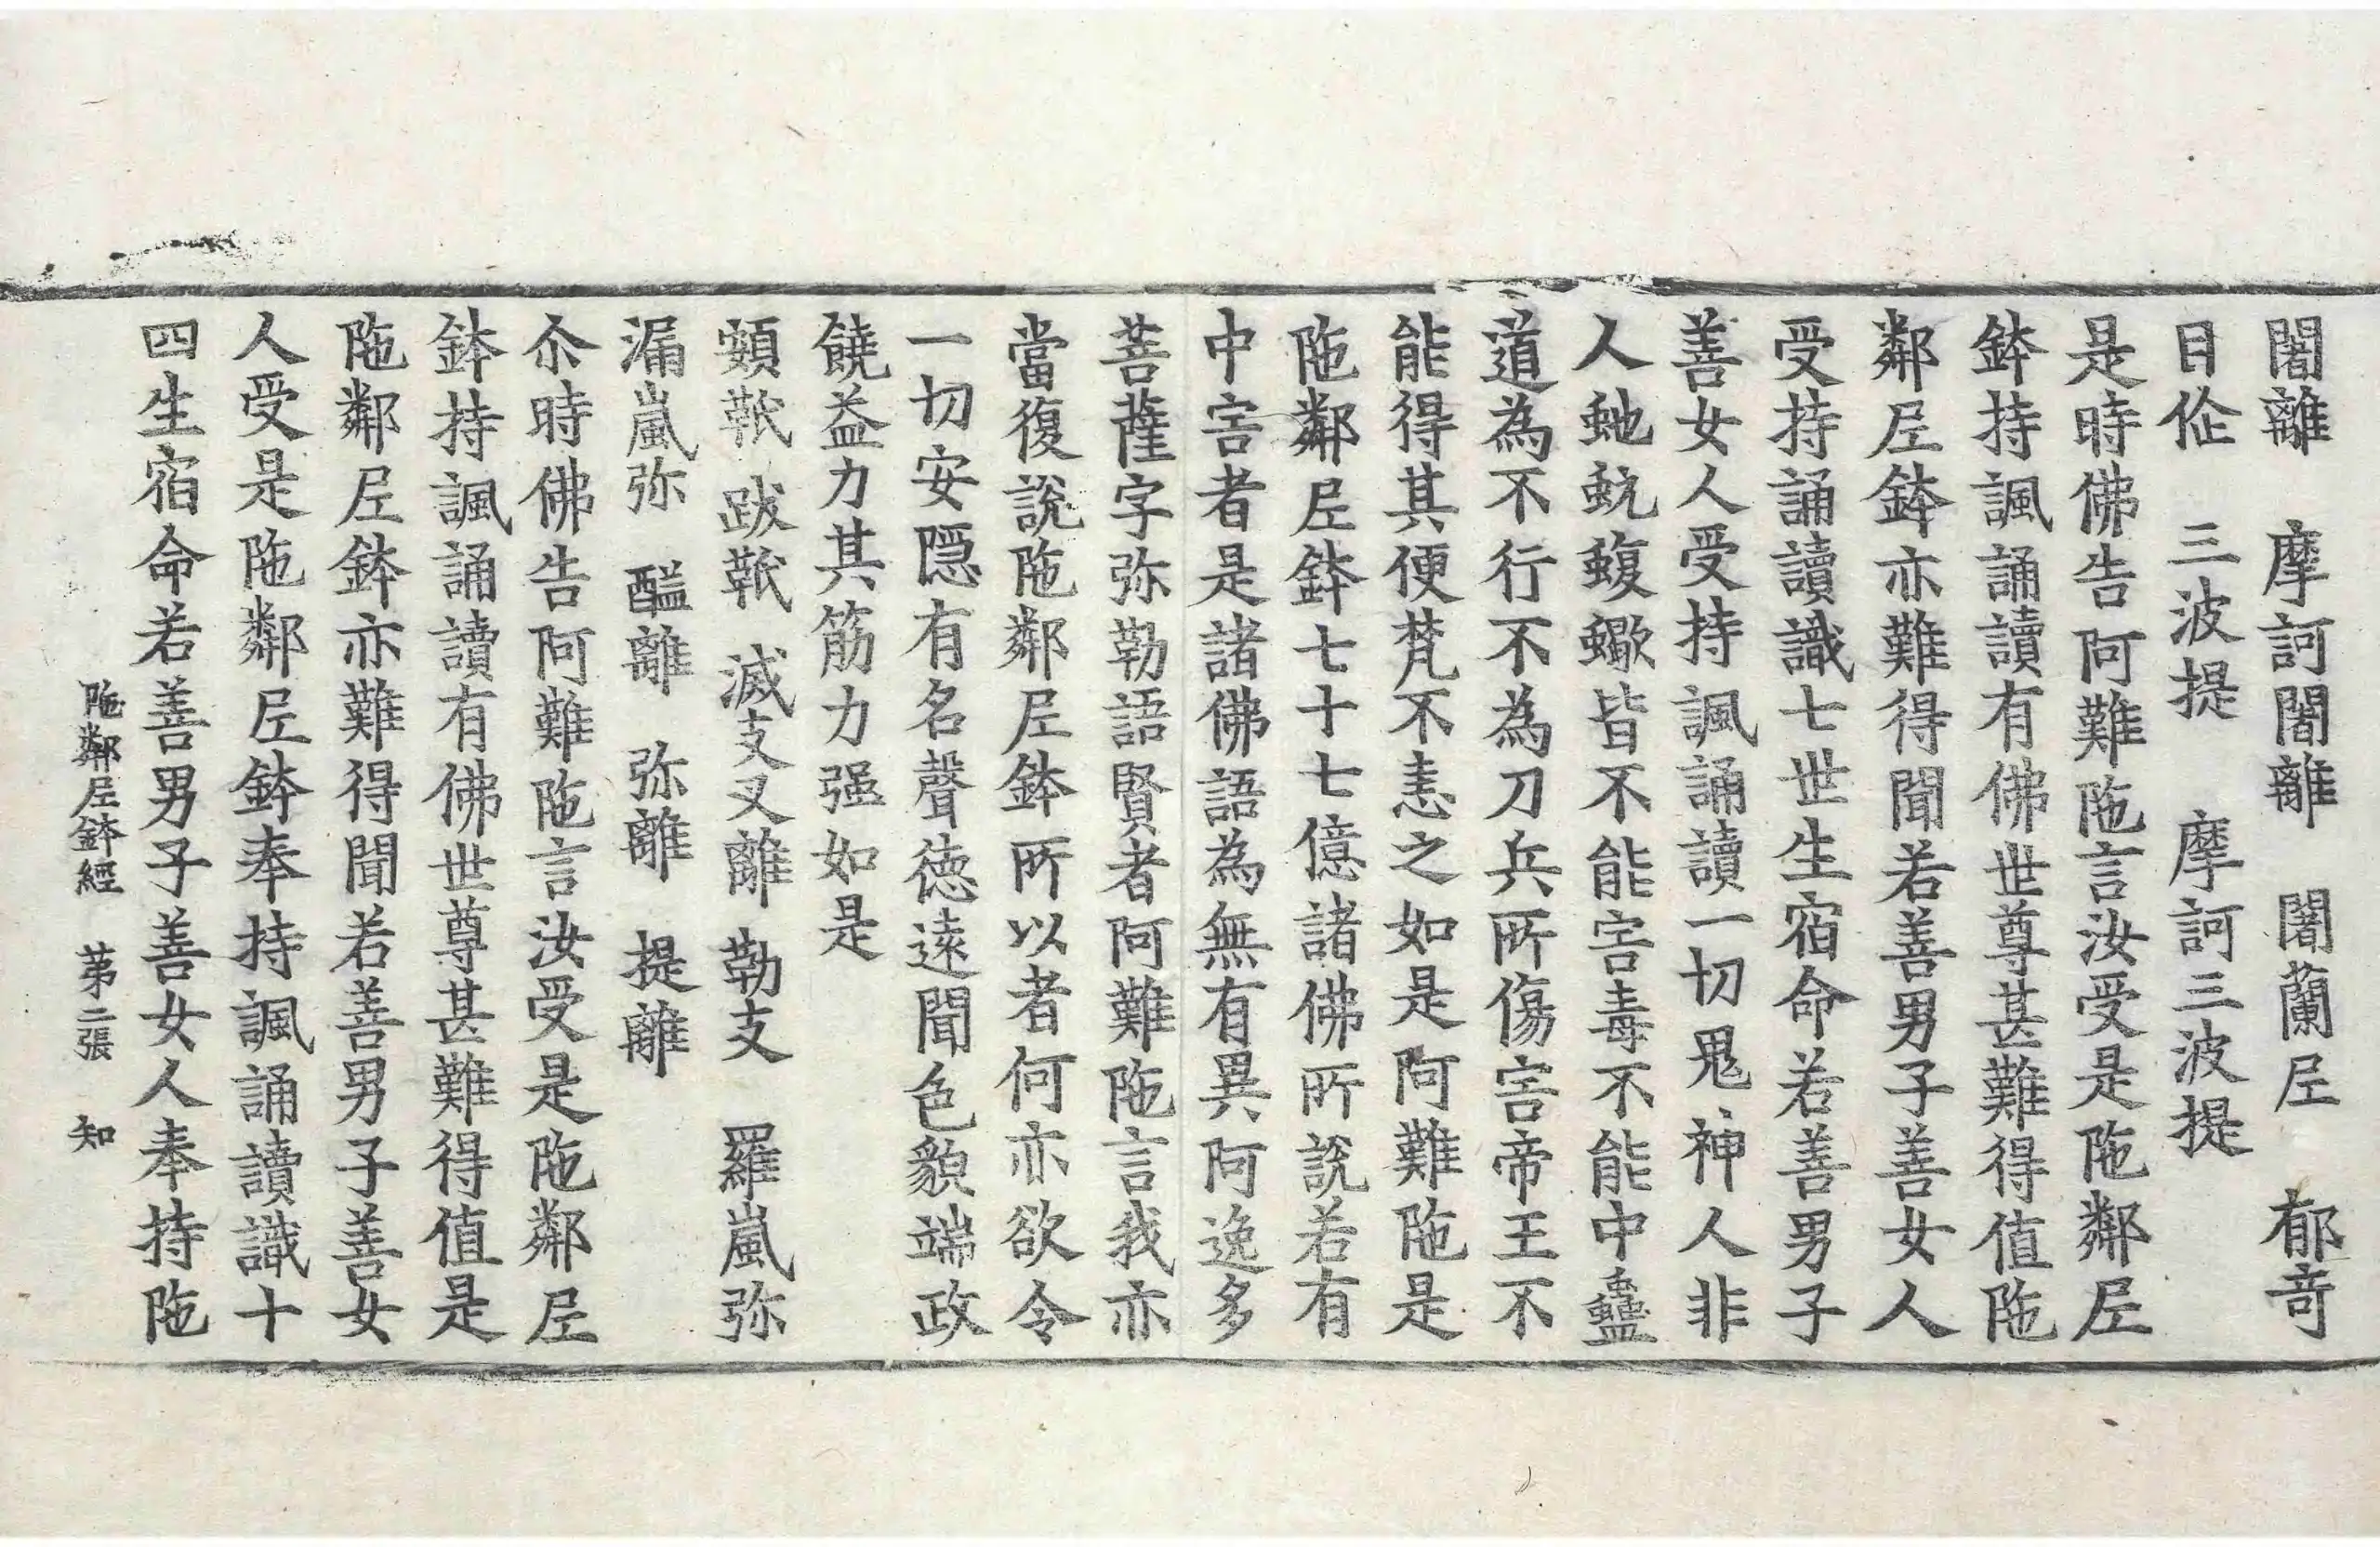 闍離　摩訶闍離　闍蘭𡰱　郁竒
目佉　三波提　摩訶三波提
是時佛告阿難陁言汝受是陁鄰𡰱
鉢持諷誦讀有佛世尊甚難得值陁
鄰𡰱鉢亦難得聞若善男子善女人
受持誦讀識七世生宿命若善男子
善女人受持諷誦讀一切鬼神人非
人虵蚖蝮蠍皆不能害毒不能中蠱
道為不行不為刀兵所傷害帝王不
能得其便梵不恚之如是阿難陁是
陁鄰𡰱鉢七十七億諸佛所說若有
中害者是諸佛語為無有異阿逸多
菩薩字弥勒語賢者阿難陁言我亦
當復說陁鄰𡰱鉢所以者何亦欲令
一切安隱有名聲德遠聞色貌端政
饒益力其筋力强如是
頞䩭　跋䩭　滅支叉離　勒支　羅嵐弥
漏嵐弥　醯離　弥離　提離
尒時佛告阿難陁言汝受是陁鄰𡰱
鉢持諷誦讀有佛世尊甚難得值是
陁鄰𡰱鉢亦難得聞若善男子善女
人受是陁鄰𡰱鉢奉持諷誦讀識十
四生宿命若善男子善女人奉持陁
陁鄰𡰱鉢經　苐二張　知